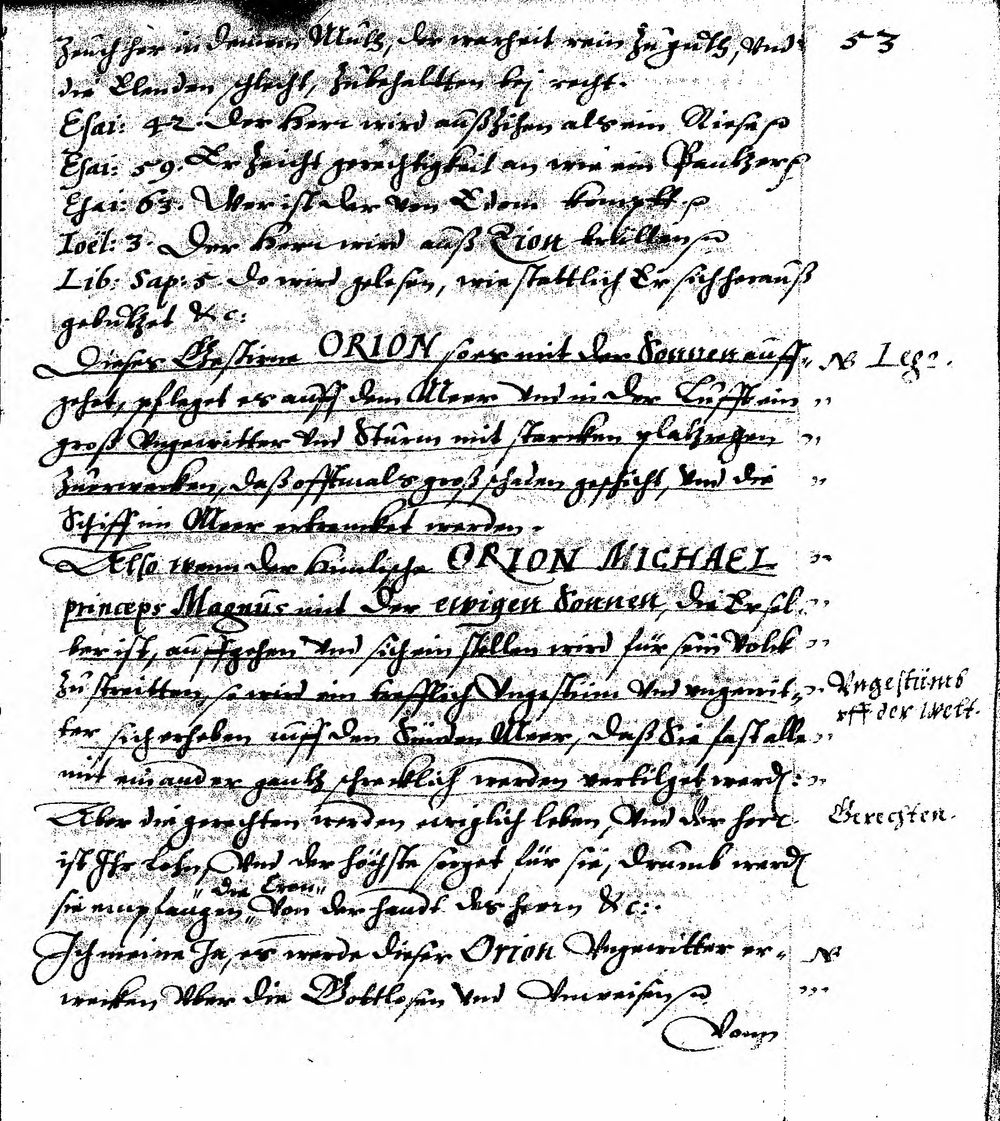 53
Zeuch her in deinem Mutt, der warheit rein zu gutt, Vnd
die Elenden schlecht, Zubehaltten bej recht.
Esai: 42. Der Herr wird außzihen als ein Riese
Esai: 59. Er zeicht gerechtigkeit an wie ein Pantzer
Esai: 63. Wer ist der von Edom kompt.
Ioël: 3. Der Herr wird auß Zion brüllen
Lib: Sap: 5. Do wird gelesen, wie stattlich Er sich herauß
gebutzet &c:
Dieses Gestirne ORION so es mit der Sonnen auff-
NB Leg:
gehet, pfleget es auff dem Meer Vnd in der Lufft ein
groß Vngewitter Vnd Sturm mit starcken platzregen
Zuerwecken, daß offtmals groß schaden geschicht, Vnd die
Schiff im Meer ertrencket werden.
Also wenn der Himlische ORION MICHAEL
princeps Magnus mit der ewigen Sonnen, die Er sel-
ber ist, auffgehen Vnd sich ein stellen wird für sein Volck
Zu streitten, so wird ein trefflich Vngestüm Vnd vngewit-
Vngestümb
vff der Welt.
ter sich erheben auff den Sünden Meer, daß Sie fast alle
mit einander gantz schrecklich werden vertilget werd:
Aber die gerechten werden ewiglich leben, Vnd der herr
Gerechten.
ist Ihr Lohn, Vnd der höchste sorget für sie, drumb werd
die Cron
sie empfangen Von der handt des herrn &c:
Ich meine Ja, es werde dieser Orion Vngewitter er-
NB
wecken Vber die Gottlosen Vnd Vnweisen
Vom